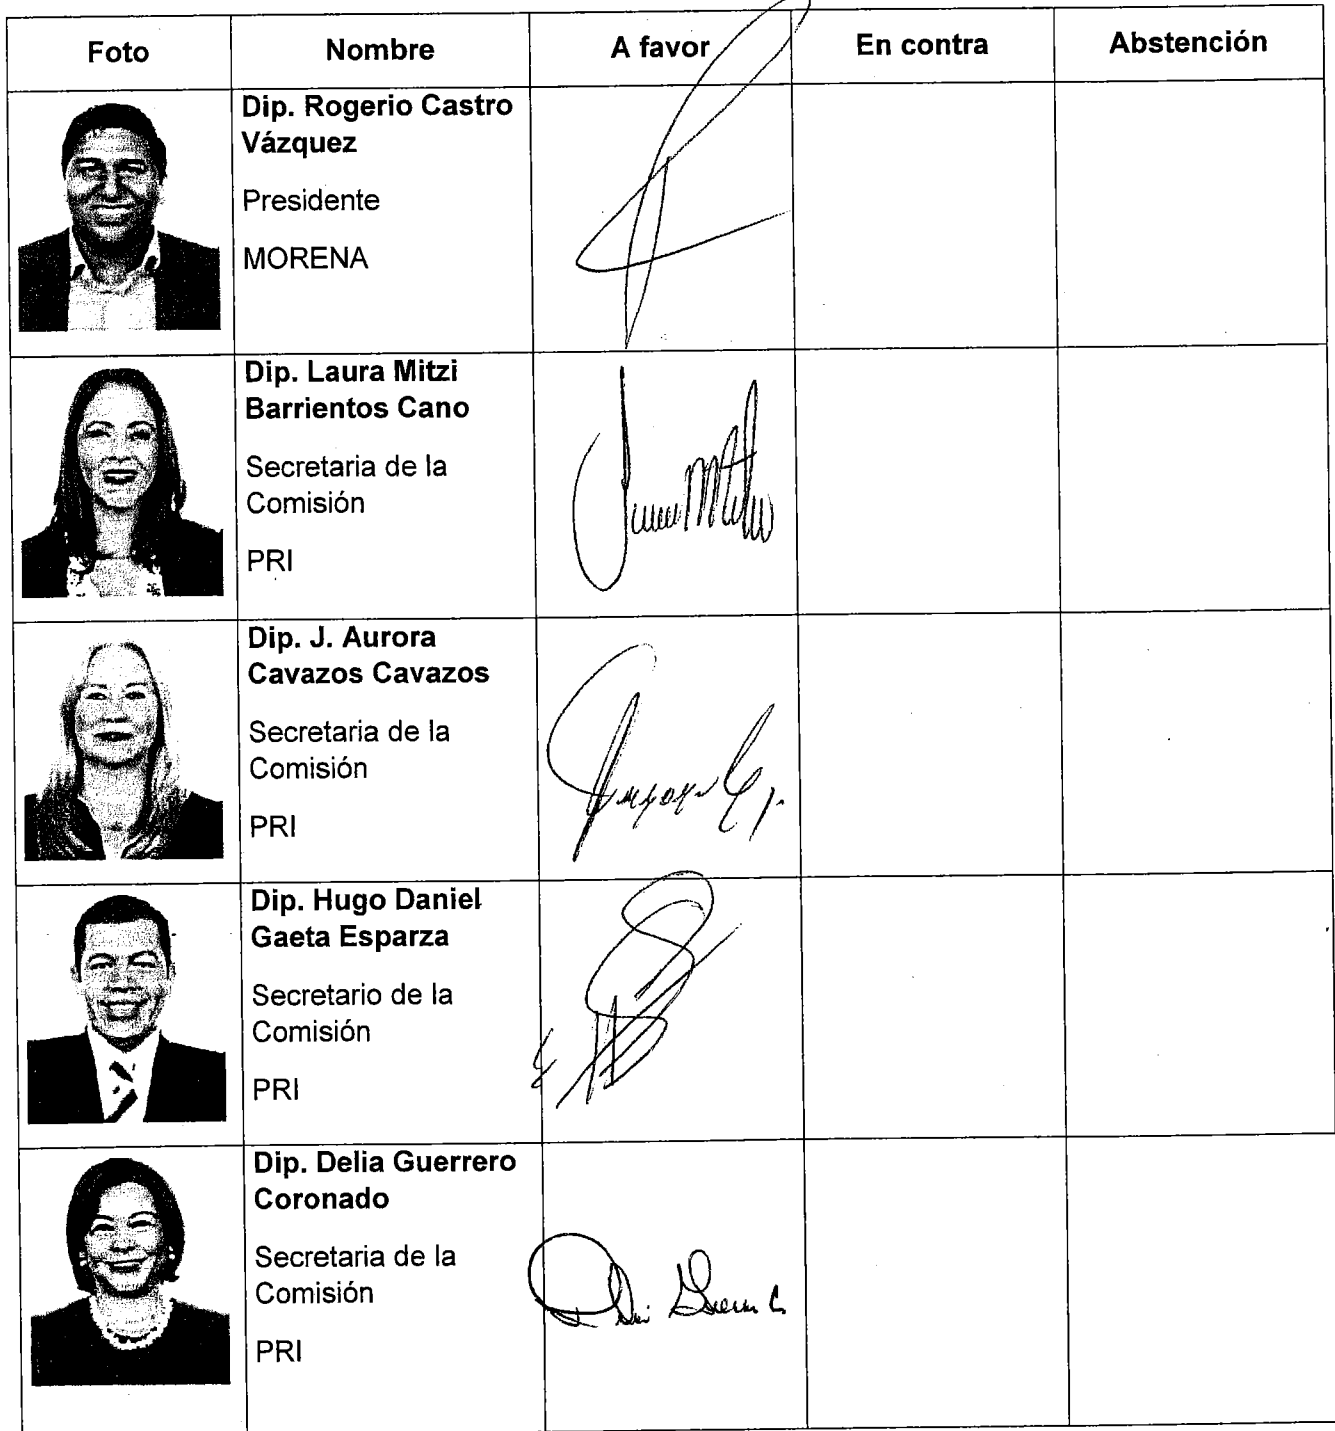 Foto
Nombre
A favor
En contra
Abstención
Dip. Rogerio Castro
Vázquez
Presidente
MORENA
Dip. Laura Mitzi
Barrientos Cano
Secretaria de la
Comisión
PRI
Dip. J. Aurora
Cavazos Cavazos
Secretaria de la
Comisión
PRI
Dip. Hugo Daniel
Gaeta Esparza
Secretario de la
Comisión
PRI
Dip. Delia Guerrero
Coronado
Secretaria de la
Comisión
PRI